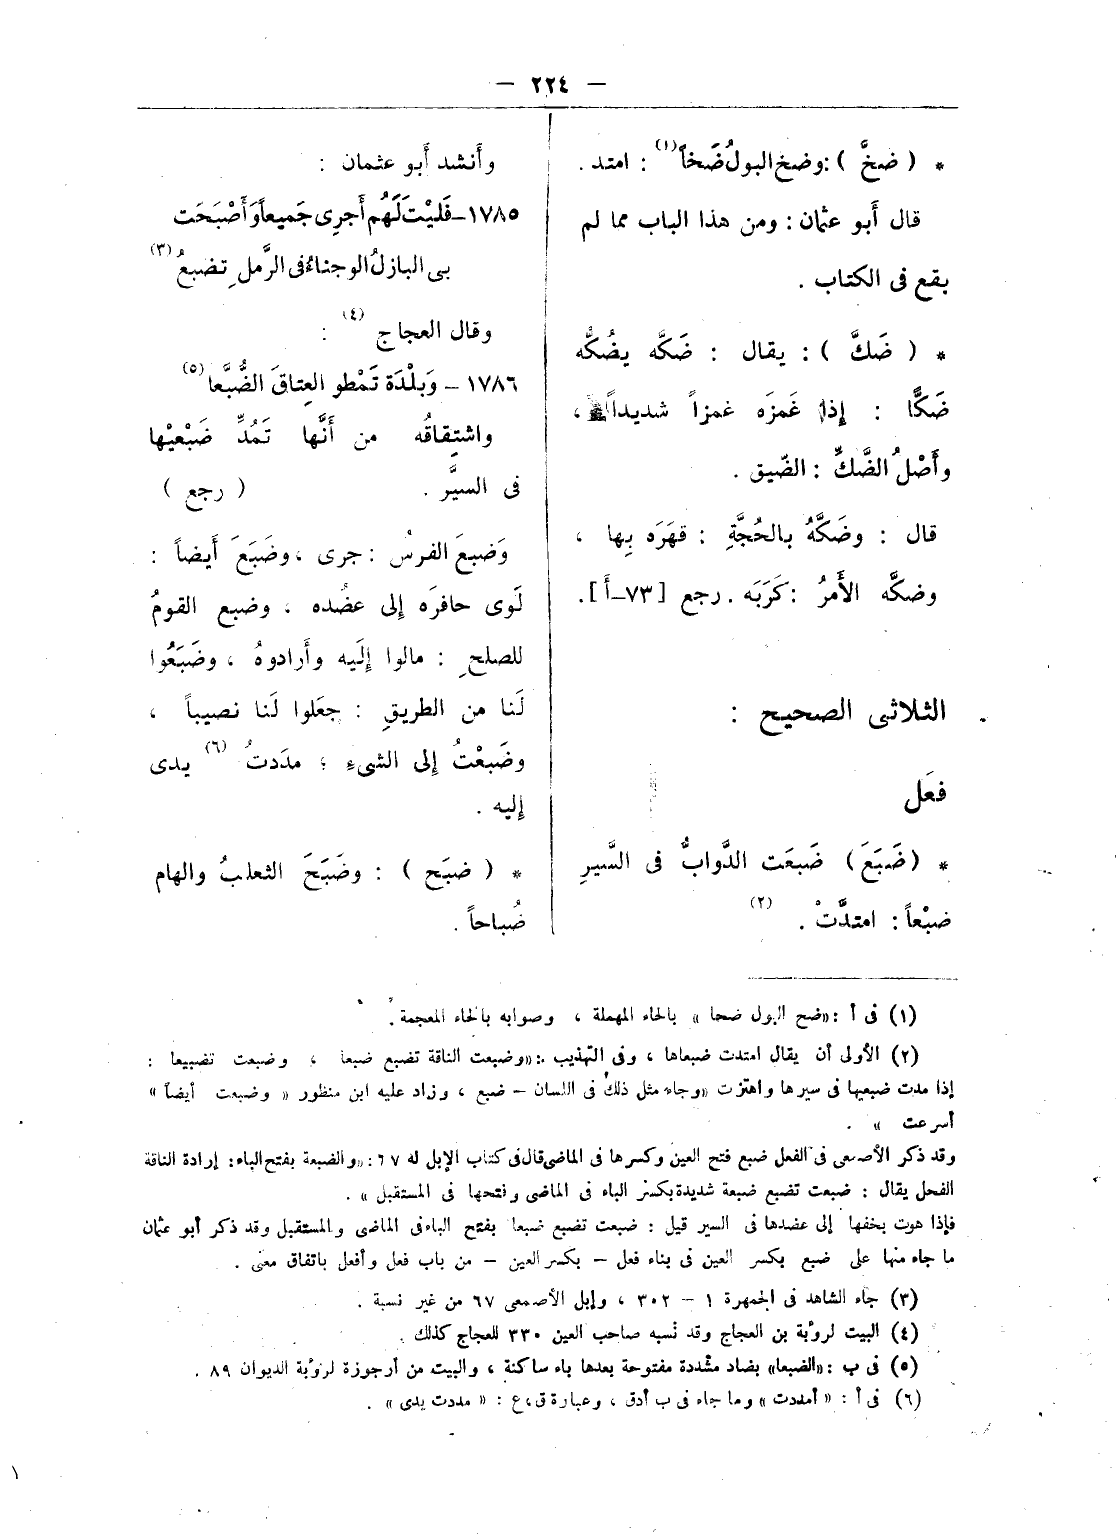 — ٢٢٤ —
* ( ضخَّ ) : وضخ البولُ ضَخاً (١) : امتد .
قال أَبو عثمان : ومن هذا الباب مما لم
يقع فى الكتاب .
* ( ضَكَّ ) : يقال : ضَكَّه يضُكُّه
ضَكًّا : إِذا غَمزَه غمزاً شديداً ،
وأَصْلُ الضَّكِّ : الضّيق .
قال : وضَكَّهُ بالحُجَّةِ : قهَرَه بِها ،
وضكَّه الأَمرُ : كَرَبَه . رجع [ ٧٣ــأَ ] .
الثلاثى الصحيح :
فعَل
* ( ضَبَعَ ) ضَبعَت الدَّوابُّ فى السَّيرِ
ضبْعاً : امتدَّتْ . (٢)
وأَنشد أَبو عثمان :
١٧٨٥ــ فَليْتَ لَهُم أَجرِى جَميعاً وَأَصْبَحَت
بى البازلُ الوجناءُ فى الرَّملِ تضبعُ (٣)
وقال العجاج (٤) :
١٧٨٦ ــ وَبلْدَة تَمْطو العِتاقَ الضُّبَّعا (٥)
واشتِقاقُه من أَنَّها تَمُدُّ ضَبْعيْها
فى السيَّر . ( رجع )
وَضبعَ الفرسُ : جرى ، وضَبَعَ أَيضاً :
لَوى حافرَه إِلى عضُده ، وضبع القومُ
للصلحِ : مالوا إِلَيه وأَرادوهُ ، وضَبَعُوا
لَنا من الطريقِ : جعَلوا لَنا نصيباً ،
وضَبعْتُ إِلى الشىءِ : مدَدتُ (٦) يدى
إِليه .
* ( ضبَح ) : وضَبَحَ الثعلبُ والهام
ضُباحاً .
(١) فى أ : «ضح البول ضحا » بالحاء المهملة ، وصوابه بالخاء المعجمة .
(٢) الأولى أن يقال امتدت ضبعاها ، وفى التهذيب : «وضبعت الناقة تضبع ضبعا ، وضبعت تضبيعا :
إذا مدت ضبعيها فى سيرها واهتزت «وجاء مثل ذلك فى اللسان – ضبع ، وزاد عليه ابن منظور « وضبعت أيضاً »
أسرعت » .
وقد ذكر الأصمعى فى الفعل ضبع فتح العين وكسرها فى الماضى قال فى كتاب الإبل له ٦٧ : «والضبعة بفتح الباء : إرادة الناقة
الفحل يقال : ضبعت تضبع ضبعة شديدة بكسر الباء فى الماضى وفتحها فى المستقبل » .
فإذا هوت بخفها إلى عضدها فى السير قيل : ضبعت تضبع ضبعا بفتح الباء فى الماضى والمستقبل وقد ذكر أبو عثمان
ما جاء منها على ضبع بكسر العين فى بناء فعل – بكسر العين – من باب فعل وأفعل باتفاق معنى .
(٣) جاء الشاهد فى الجمهرة ١ – ٣٠٢ ، وإبل الأصمعى ٦٧ من غير نسبة .
(٤) البيت لرؤبة بن العجاج وقد نسبه صاحب العين ٣٣٠ للعجاج كذلك .
(٥) فى ب : «الضبعا» بضاد مشددة مفتوحة بعدها باء ساكنة ، والبيت من أرجوزة لرؤبة الديوان ٨٩ .
(٦) فى أ : « أمددت » وما جاء فى ب أدق ، وعبارة ق ، ع : « مددت يدى » .
١